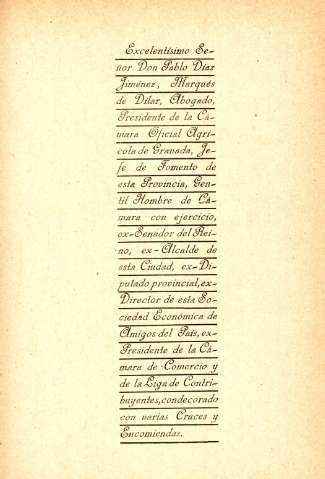 Excelentísimo Se-
ñor Don Pablo Díaz
Jiménez, Marqués
de Dílar, Abogado,
Presidente de la Cá-
mara Oficial Agrí-
cola de Granada, Je-
fe de Fomento de
esta Provincia, Gen-
til Hombre de Cá-
mara con ejercicio,
ex-Senador del Rei-
no, ex-Alcalde de
esta Ciudad, ex-Di-
putado provincial, ex-
Director de esta So-
ciedad Económica de
Amigos del País, ex-
Presidente de la Cá-
mara de Comercio y
de la Liga de Contri-
buyentes, condecorado
con varias Cruces y
Encomiendas.